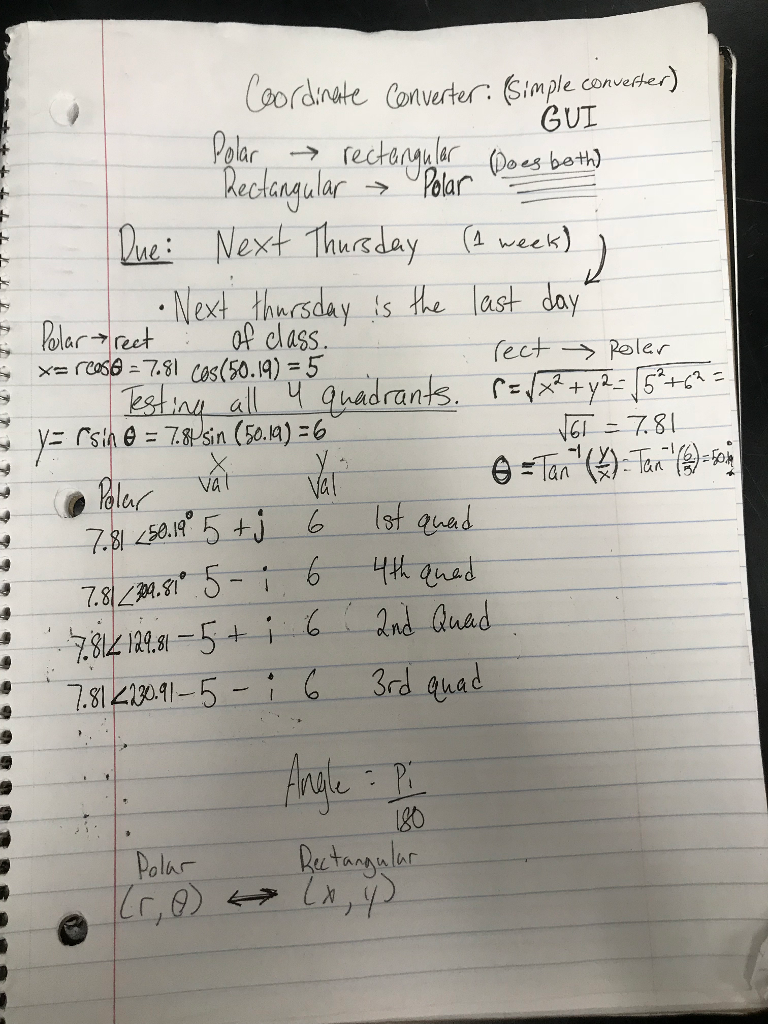 Coordinate Converter: (Simple converter)
GUI
Polar → rectangular (Does both)
Rectangular → Polar
Due: Next Thursday (1 week)
• Next thursday is the last day
of class.
Polar → rect
x = rcosθ = 7.81 cos(50.19) = 5
rect → Polar
r = √x² + y² = √5² + 6² =
√61 = 7.81
θ = Tan⁻¹(y/x) = Tan⁻¹(6/5) = 50.19
Testing all 4 quadrants.
y = rsinθ = 7.81 sin(50.19) = 6
Polar x val y val
7.81 ∠50.19° 5 + j 6 1st quad
7.81 ∠309.81° 5 - i 6 4th quad
7.81 ∠129.81 -5 + i 6 2nd Quad
7.81 ∠230.91 -5 - i 6 3rd quad
Angle = Pi/180
Polar Rectangular
(r, θ) ↔ (x, y)